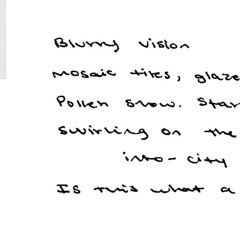 Blurry vision
mosaic tiles, glaze
Pollen snow. Star
swirling on the
into-city
Is this what a